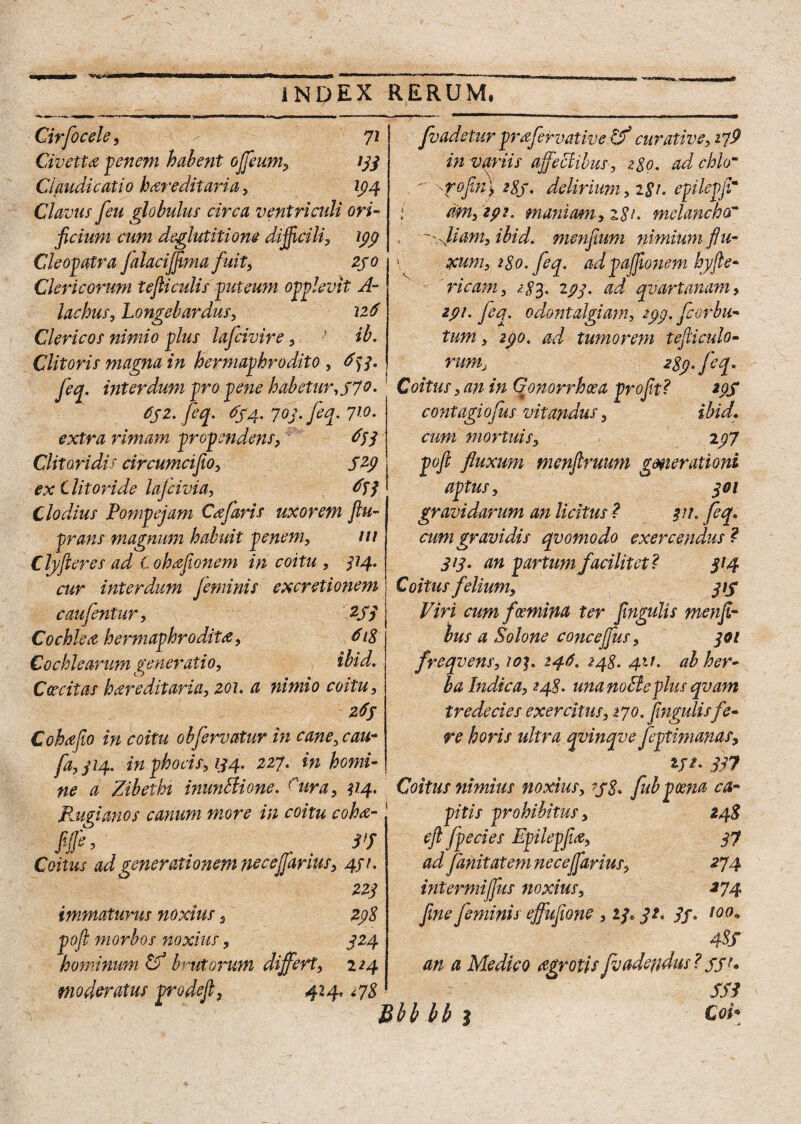 INDEX RERUM.
Cirsocele, 71
Civettæ penem habent osseum, 133
Claudicatio hæreditaria, 194
Clavus seu globulus circa ventriculi ori-
ficium cum deglutitione difficili, 199
Cleopatra salacissima fuit, 250
Clericorum testiculis puteum opplevit A-
lachus, Longebardus, 126
Clericos nimio plus lascivire, ib.
Clitoris magna in hermaphrodito, 653.
seq. interdum pro pene habetur, 570.
652. seq. 654. 703. seq. 710.
extra rimam propendens, 653
Clitoridis circumcisio, 529
ex Clitoride lascivia, 653
Clodius Pompejam Cæsaris uxorem stu-
prans magnum habuit penem, 111
Clysteres ad Cohæsionem in coitu, 314.
cur interdum seminis excretionem
causentur, 253
Cochleæ hermaphroditæ, 618
Cochlearum generatio, ibid.
Cœcitas hæreditaria, 201. a nimio coitu,
265
Cohæsio in coitu observatur in cane, cau-
sa, 314. in phocis, 134. 227. in homi-
ne a Zibethi inunctione. Cura, 314.
Rugianos canum more in coitu cohæ-
sisse, 315
Coitus ad generationem necessarius, 451.
223
immaturus noxius, 298
post morbos noxius, 324
hominum & brutorum differt, 224
moderatus prodest, 424. 278
svadetur præservative & curative, 279
in variis affectibus, 280. ad chlo-
rosin, 285. delirium, 281. epilepsi-
am, 292. maniam, 281. melancho-
liam, ibid. mensium nimium flu-
xum, 280. seq. ad passionem hyste-
ricam, 283. 293. ad qvartanam,
291. seq. odontalgiam, 299. scorbu-
tum, 290. ad tumorem testiculo-
rum, 289. seq.
Coitus, an in Gonorrhœa prosit? 295
contagiosus vitandus, ibid.
cum mortuis, 297
post fluxum menstruum generationi
aptus, 301
gravidarum an licitus? 311. seq.
cum gravidis qvomodo exercendus?
313. an partum facilitet? 314
Coitus felium, 315
Viri cum fœmina ter singulis mensi-
bus a Solone concessus, 301
freqvens, 103. 246. 248. 421. ab her-
ba Indica, 248. una nocte plus qvam
tredecies exercitus, 270. singulis fe-
re horis ultra qvinqve septimanas,
252. 337
Coitus nimius noxius, 258. sub pœna ca-
pitis prohibitus, 248
est species Epilepsiæ, 37
ad sanitatem necessarius, 274
intermissus noxius, 274
sine seminis effusione, 23. 32. 35. 100.
485
an a Medico ægrotis svadendus? 551.
553
Bbb bb 3 Coi-